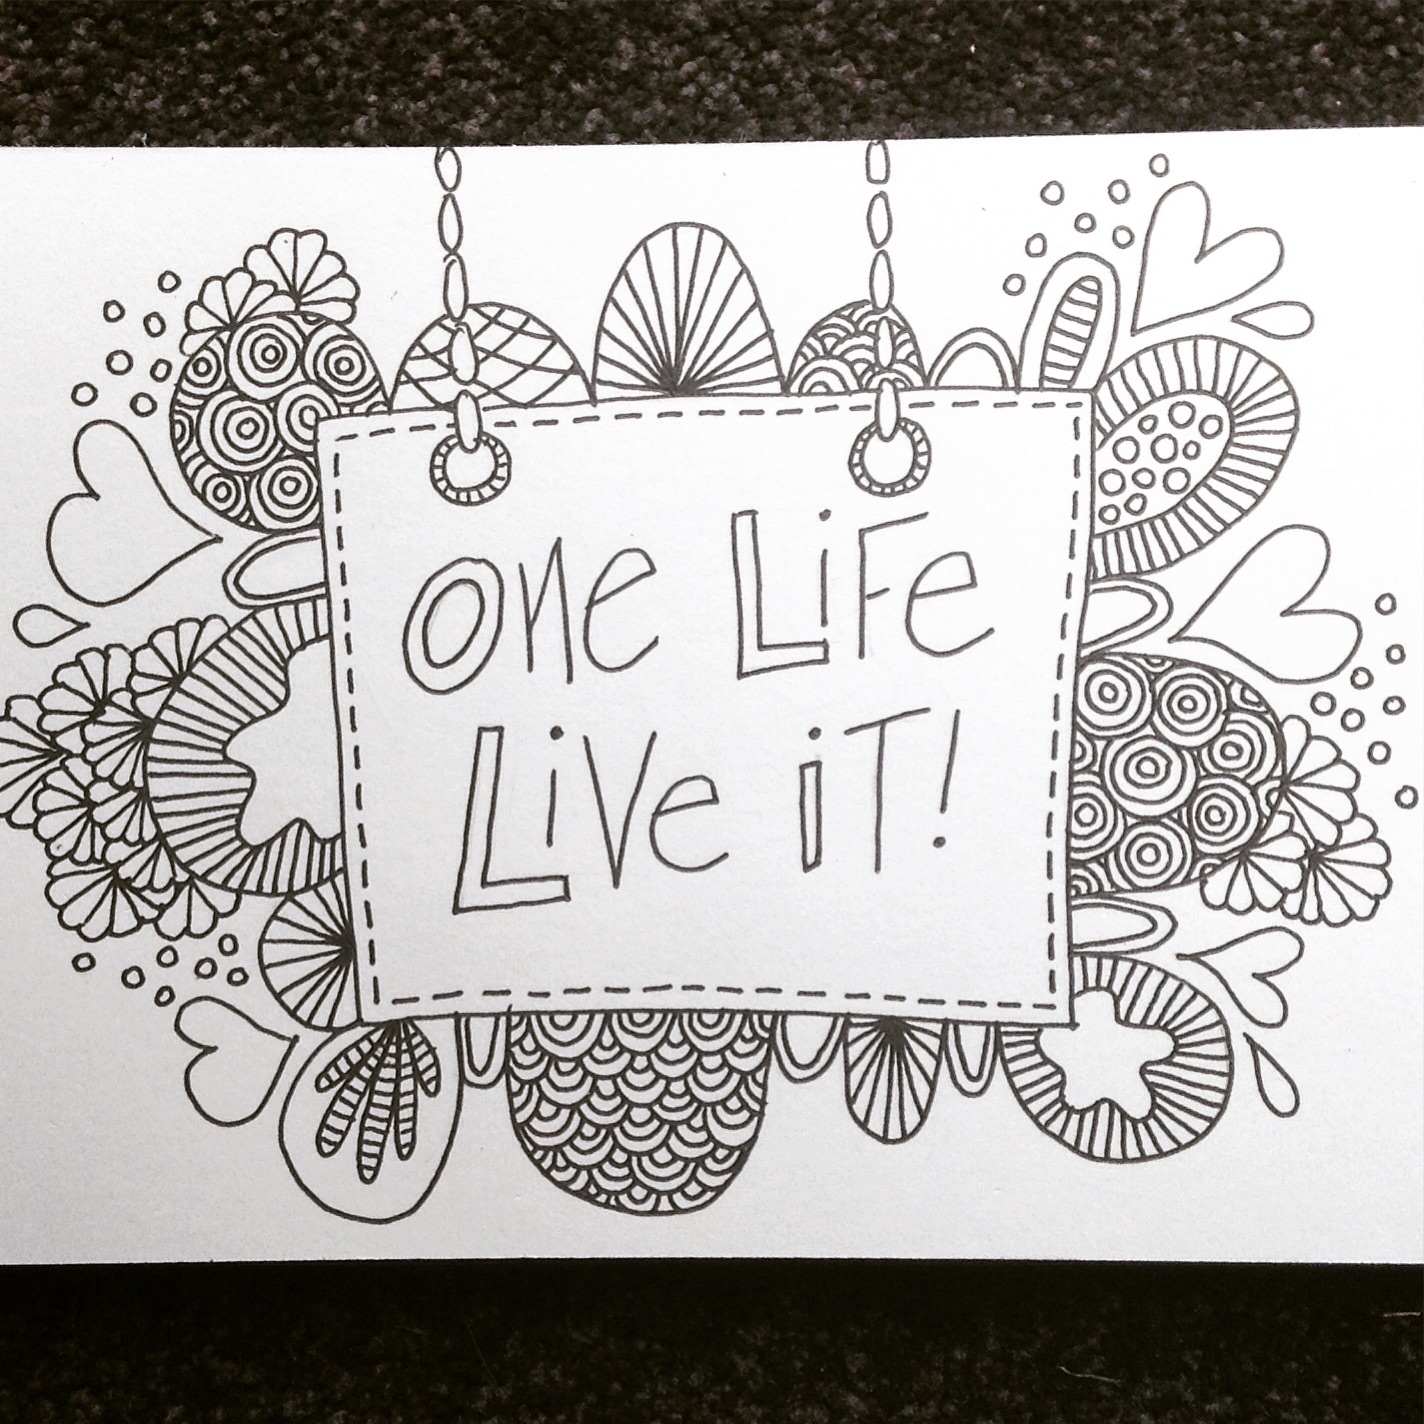 ONE LiFe
LiVe iT!